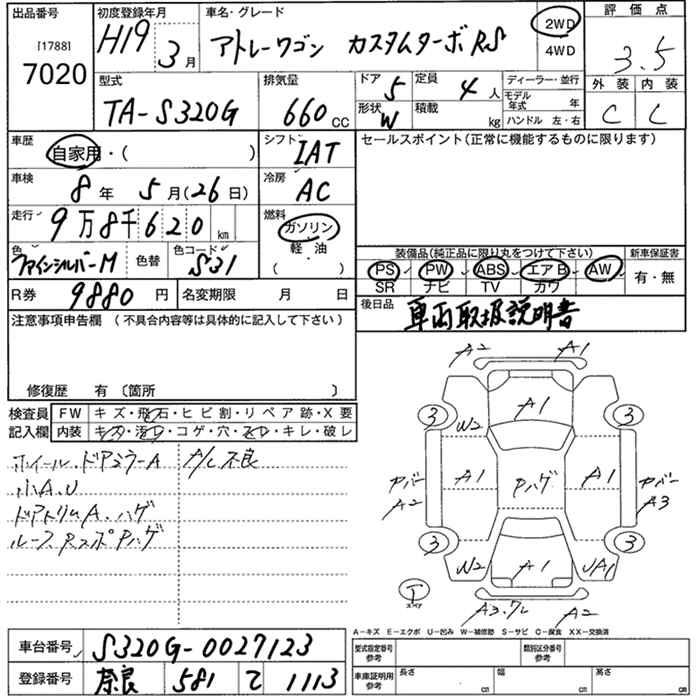 出品番号 [1788] 7020
初度登録年月 H19年 3月
車名・グレード アトレーワゴン カスタムターボRS
2WD
4WD
評価点 3.5
外装 内装
C C
型式 TA-S320G
排気量 660 CC
ドア 5
定員 4人
形状 W
積載 kg
ディーラー・並行
モデル年式 年
ハンドル 左・右
車歴 自家用・( )
シフト IAT
セールスポイント(正常に機能するものに限ります)
車検 8年 5月(26日)
冷房 AC
走行 9万8千620 km
燃料 ガソリン
軽・油
( )
色 ファインシルバーM
色替
色コード S31
装備品(純品に限り丸をつけて下さい)
新車保証書
PS PW ABS エアB AW
SR ナビ TV カワ
有・無
R券 9880円
名変期限 月 日
後日品 車両取扱説明書
注意事項申告欄 (不具合内容等は具体的に記入して下さい)
修復歴 有 〔箇所 〕
検査員記入欄
FW キズ・飛石・ヒビ割・リペア跡・X要
内装 キズ・汚れ・コゲ・穴・ズレ・キレ・破レ
ホイール、ドアミラーA A/C不良
小A.U
ドアトリムA.ハゲ
ルーフ、Rスポ Pハゲ
A2 A1
3 A1 3
W2
A1 Pハゲ A1
カバー A2
カバー A3
3 3
W2 A1 UA1
T スペア
A3.ワレ A2
A-キズ E-エクボ U-凹み W-補修跡 S-サビ C-腐食 XX-交換済
型式指定番号 参考
類別区分番号 参考
車庫証明用 参考
長さ cm
幅 cm
高さ cm
車台番号 S320G-0027123
登録番号 奈良 581 て 1113